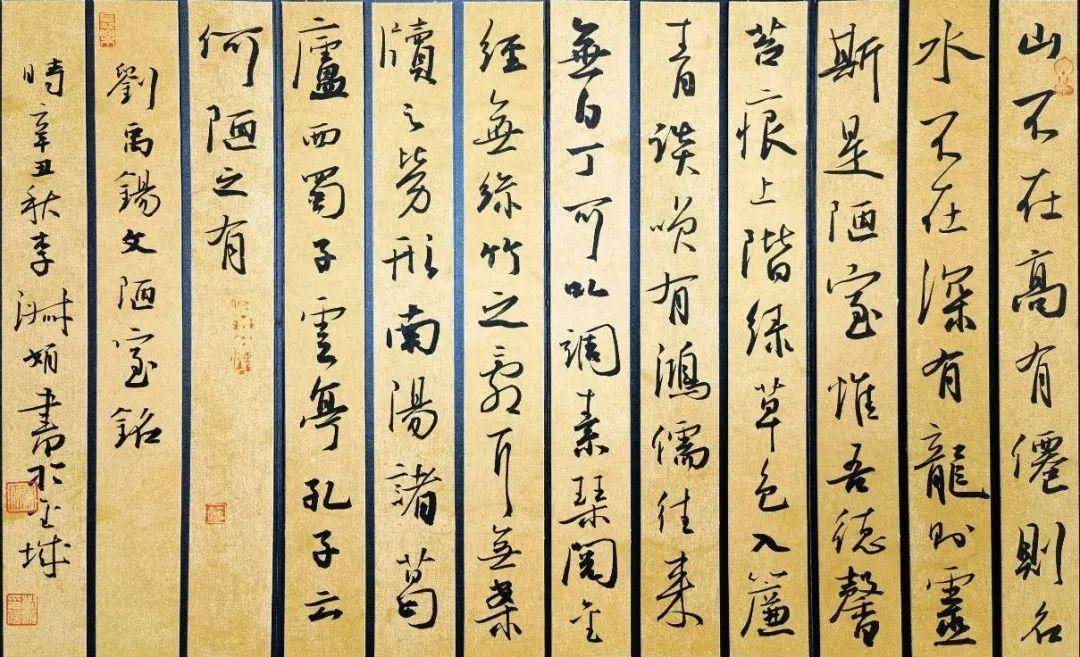 山不在高有僊則名
水不在深有龍則靈
斯是陋室惟吾德馨
苔痕上階緑草色入簾
青談笑有鴻儒往来
無白丁可以調素琴閲金
經無絲竹之亂耳無案
牘之勞形南陽諸葛
廬西蜀子雲亭孔子云
何陋之有
劉禹錫文陋室銘
時辛丑秋李淑娟書於金城